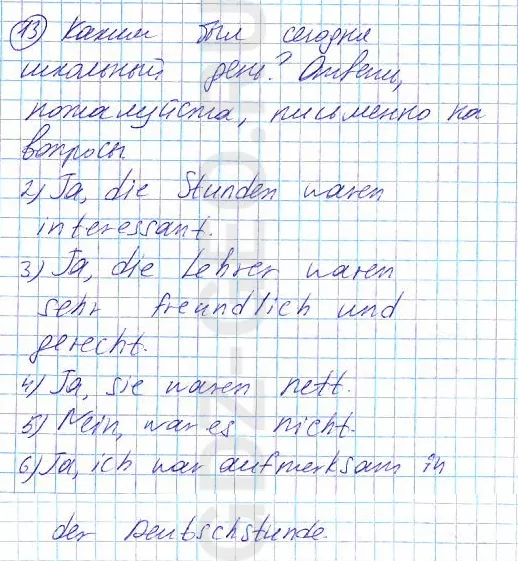 13) Каким был сегодня
школьный день? Ответь,
пожалуйста, письменно на
вопросы.
2) Ja, die Stunden waren
interessant.
3) Ja, die Lehrer waren
sehr freundlich und
gerecht.
4) Ja, sie waren nett.
5) Nein, war es nicht.
6) Ja, ich war aufmerksam in
der Deutschstunde.